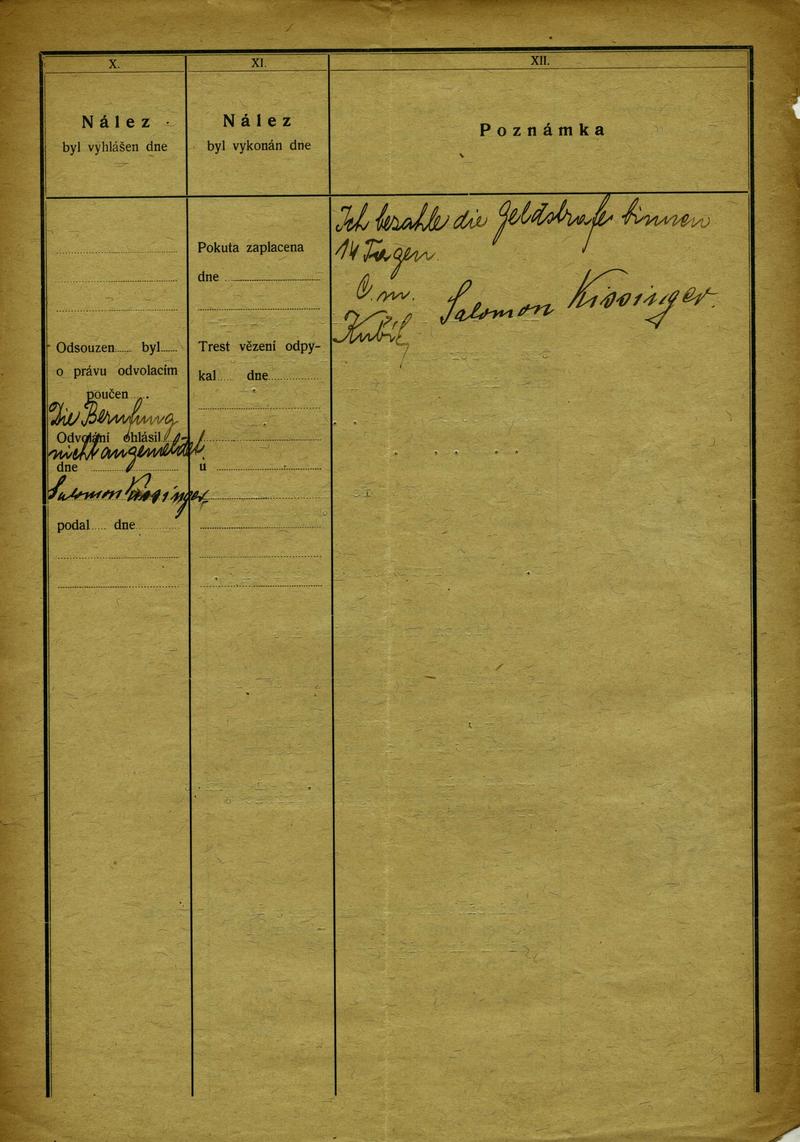 X.
XI.
XII.
Nález
byl vyhlášen dne
Nález
byl vykonán dne
Poznámka
Odsouzen...... byl......
o právu odvolacím
poučen
Die Berufung
Odvolání ohlásil
nicht angemeldet
dne
Salomon Kissinger
podal..... dne
Pokuta zaplacena
dne
Trest vězení odpy-
kal..... dne
u
Ich bezahle die Geldstrafe binnen
14 Tagen
Salomon Kissinger